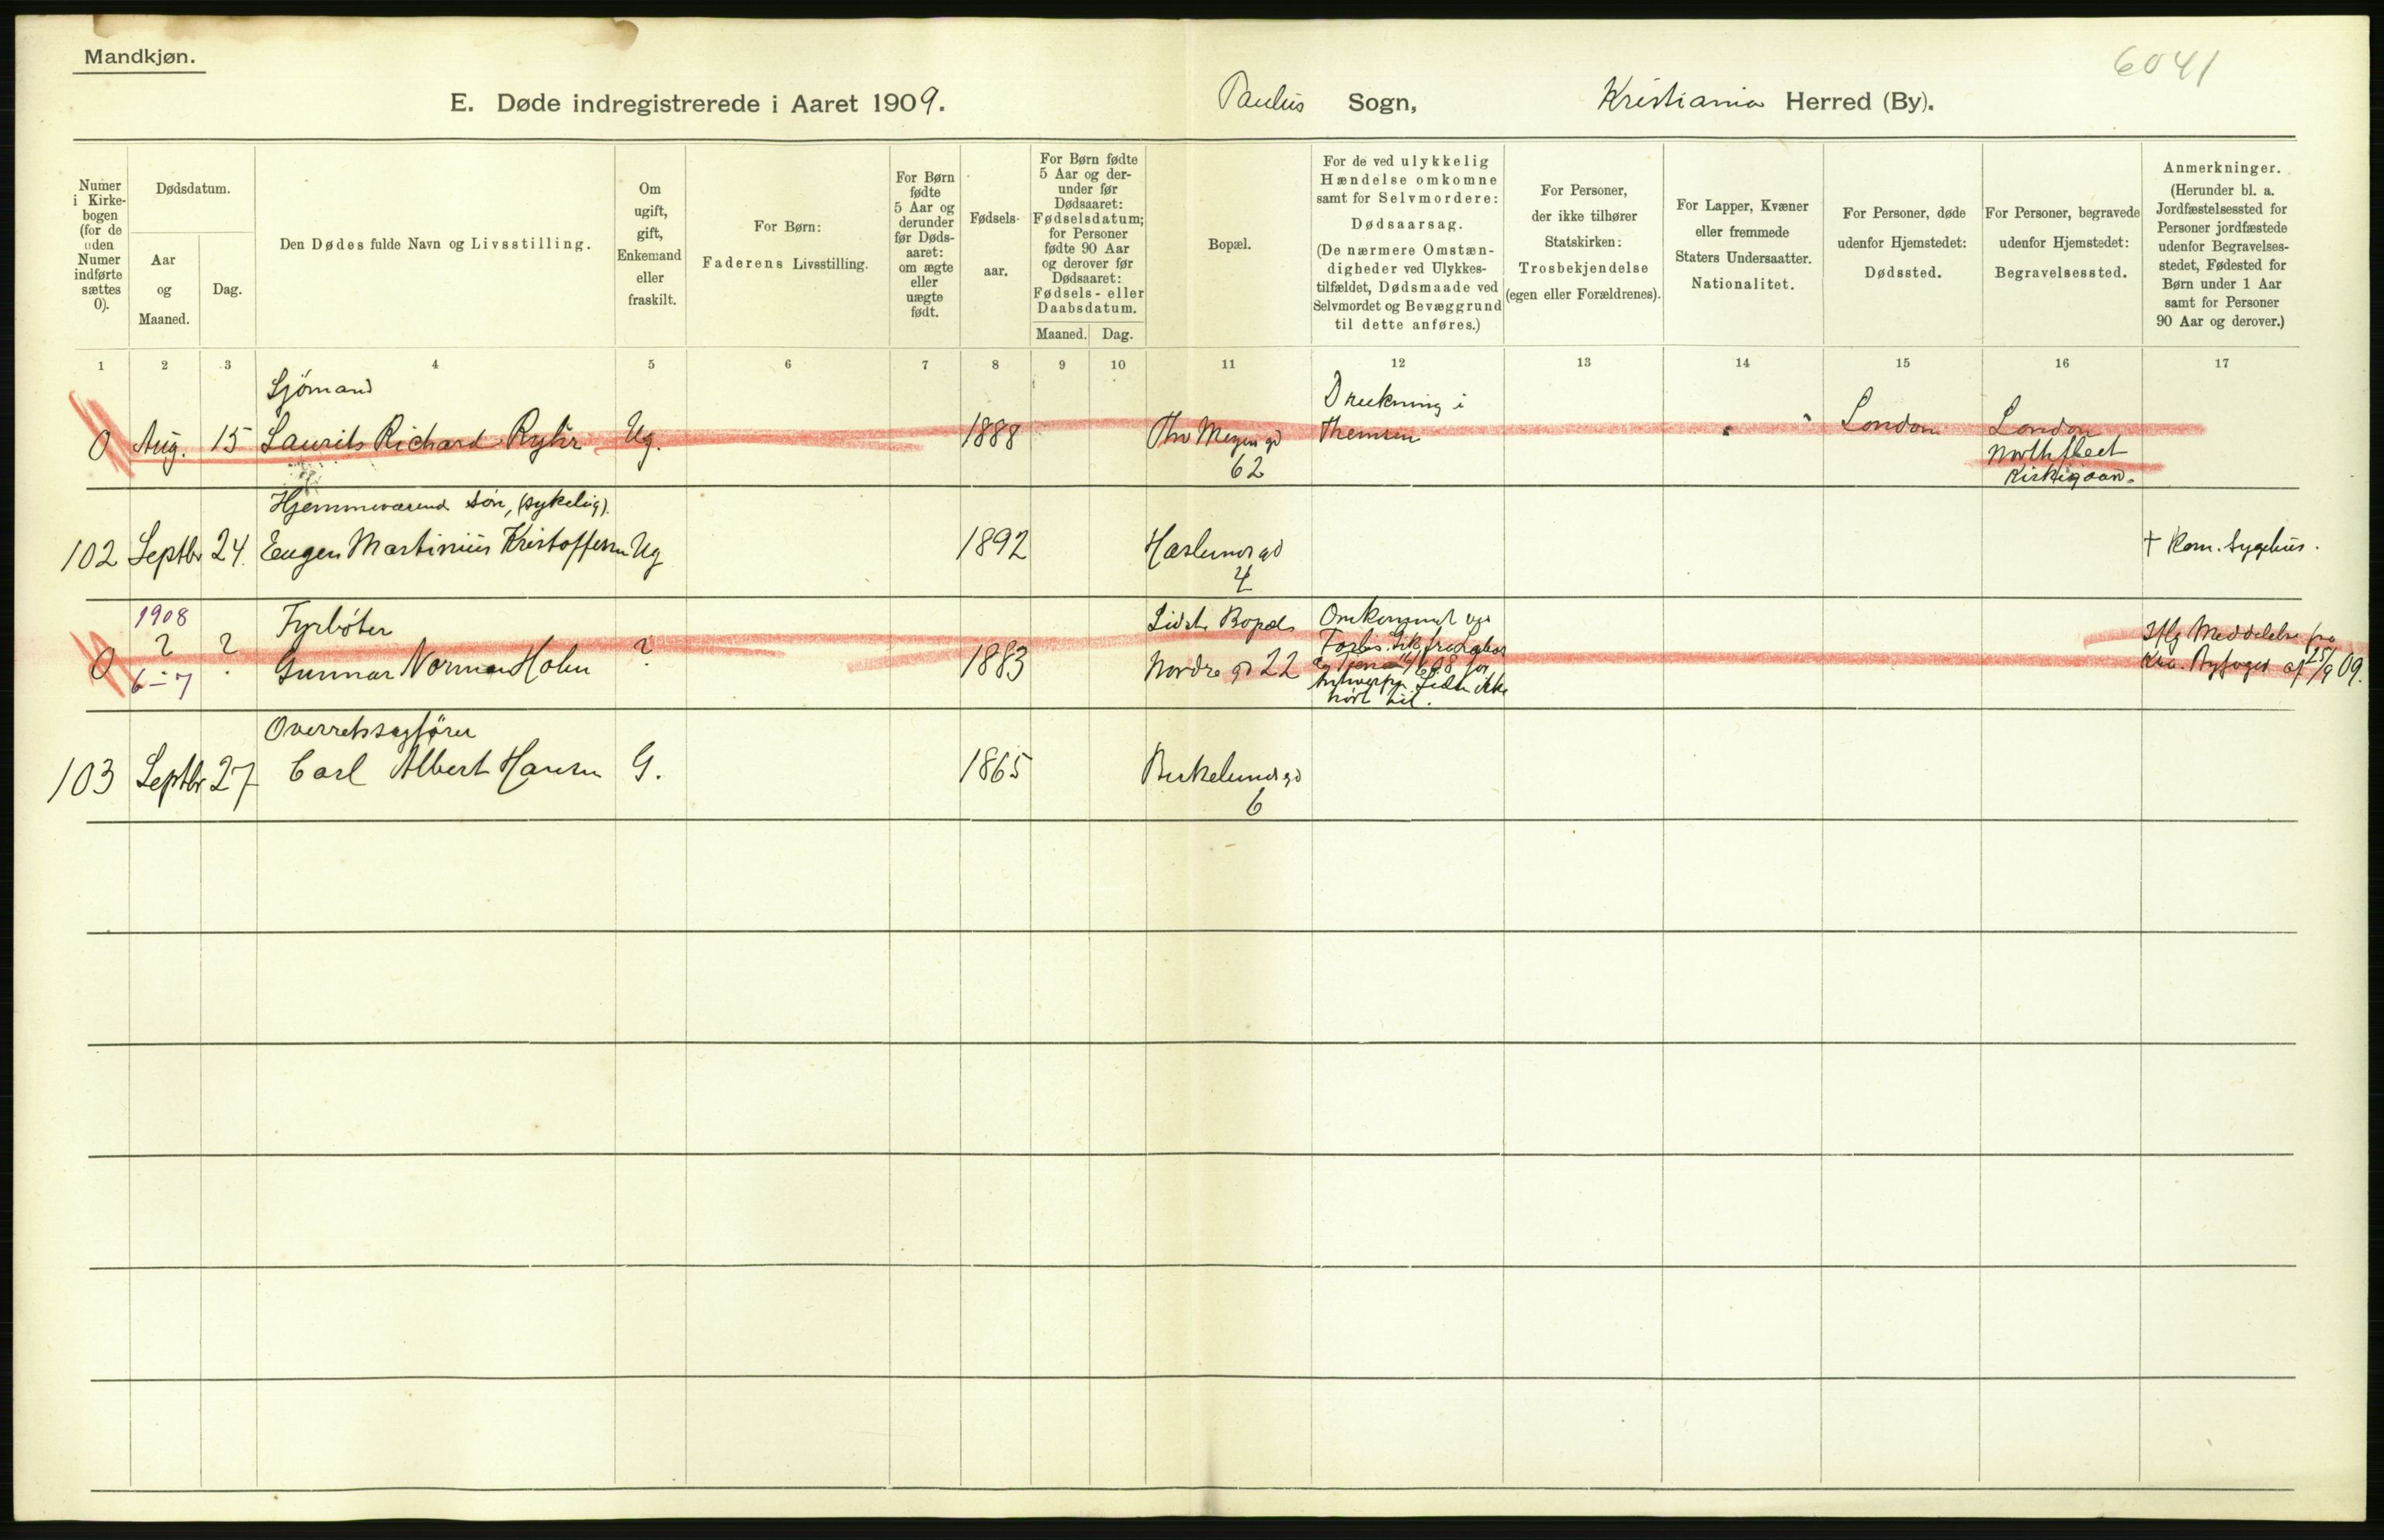 Mandkjøn.
6041
E. Døde indregistrerede i Aaret 1909.
Paulus Sogn, Kristiania Herred (By).
Numer i Kirke-bogen (for de uden Numer indførte sættes 0).
Dødsdatum.
Aar og Maaned.
Dag.
Den Dødes fulde Navn og Livsstilling.
Om ugift, gift, Enkemand eller fraskilt.
For Børn: Faderens Livsstilling.
For Børn fødte 5 Aar og derunder før Døds-aaret: om ægte eller uægte født.
Fødsels-aar.
For Børn fødte 5 Aar og der-under før Dødsaaret: Fødselsdatum; for Personer fødte 90 Aar og derover før Dødsaaret: Fødsels- eller Daabsdatum.
Maaned. Dag.
Bopæl.
For de ved ulykkelig Hændelse omkomne samt for Selvmordere: Dødsaarsag. (De nærmere Omstæn-digheder ved Ulykkes-tilfældet, Dødsmaade ved Selvmordet og Bevæggrund til dette anføres.)
For Personer, der ikke tilhører Statskirken: Trosbekjendelse (egen eller Forældrenes).
For Lapper, Kvæner eller fremmede Staters Undersaatter. Nationalitet.
For Personer, døde udenfor Hjemstedet: Dødssted.
For Personer, begravede udenfor Hjemstedet: Begravelsessted.
Anmerkninger. (Herunder bl. a. Jordfæstelsessted for Personer jordfæstede udenfor Begravelses-stedet, Fødested for Børn under 1 Aar samt for Personer 90 Aar og derover.)
1 2 3 4 5 6 7 8 9 10 11 12 13 14 15 16 17
Sjömand Drukning i
0 Aug. 15 Laurits Richard Ug. 1888 Thv Meyers gd Themsen London London
62 Northfleet
Kirkegaard.
Hjemmeværend søn, (sykelig).
102 Septbr 24. Eugen Martinius Kristoffersen Ug 1892 Haslunds gd † Kom. Sygehus.
4
1908 Fyrböter Sidste Bopæl Omkommet ved
? ? Gunnar Norman Holm ? 1883 Nordre gd 22
0 6-7 Iflg Meddelelse fra
Kra. Byfoged af 25/9 09.
Antwerpen. Siden ikke
hørt til.
Overretssagförer
103 Septbr 27 Carl Albert Hansen G. 1865 Birkelunds gd
6